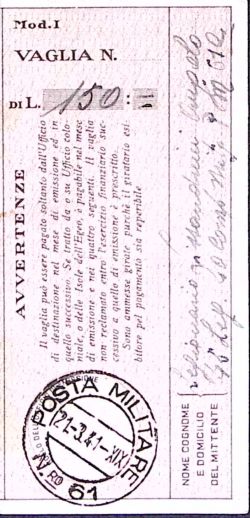 Mod. I
VAGLIA N.
DI L. 150 : =
AVVERTENZE
Il vaglia può essere pagato soltanto dall'Ufficio
di destinazione nel mese di emissione ed in
quello successivo. Se tratto da o su Ufficio colo-
niale, o delle Isole dell'Egeo, è pagabile nel mese
di emissione e nei quattro seguenti. Il vaglia
non reclamato entro l'esercizio finanziario suc-
cessivo a quello di emissione è prescritto.
Sono ammesse girate purchè il giratario esi-
bitore pel pagamento sia reperibile.
POSTA MILITARE
21.3.41.XIX
N.RO 61
NOME COGNOME
E DOMICILIO
DEL MITTENTE